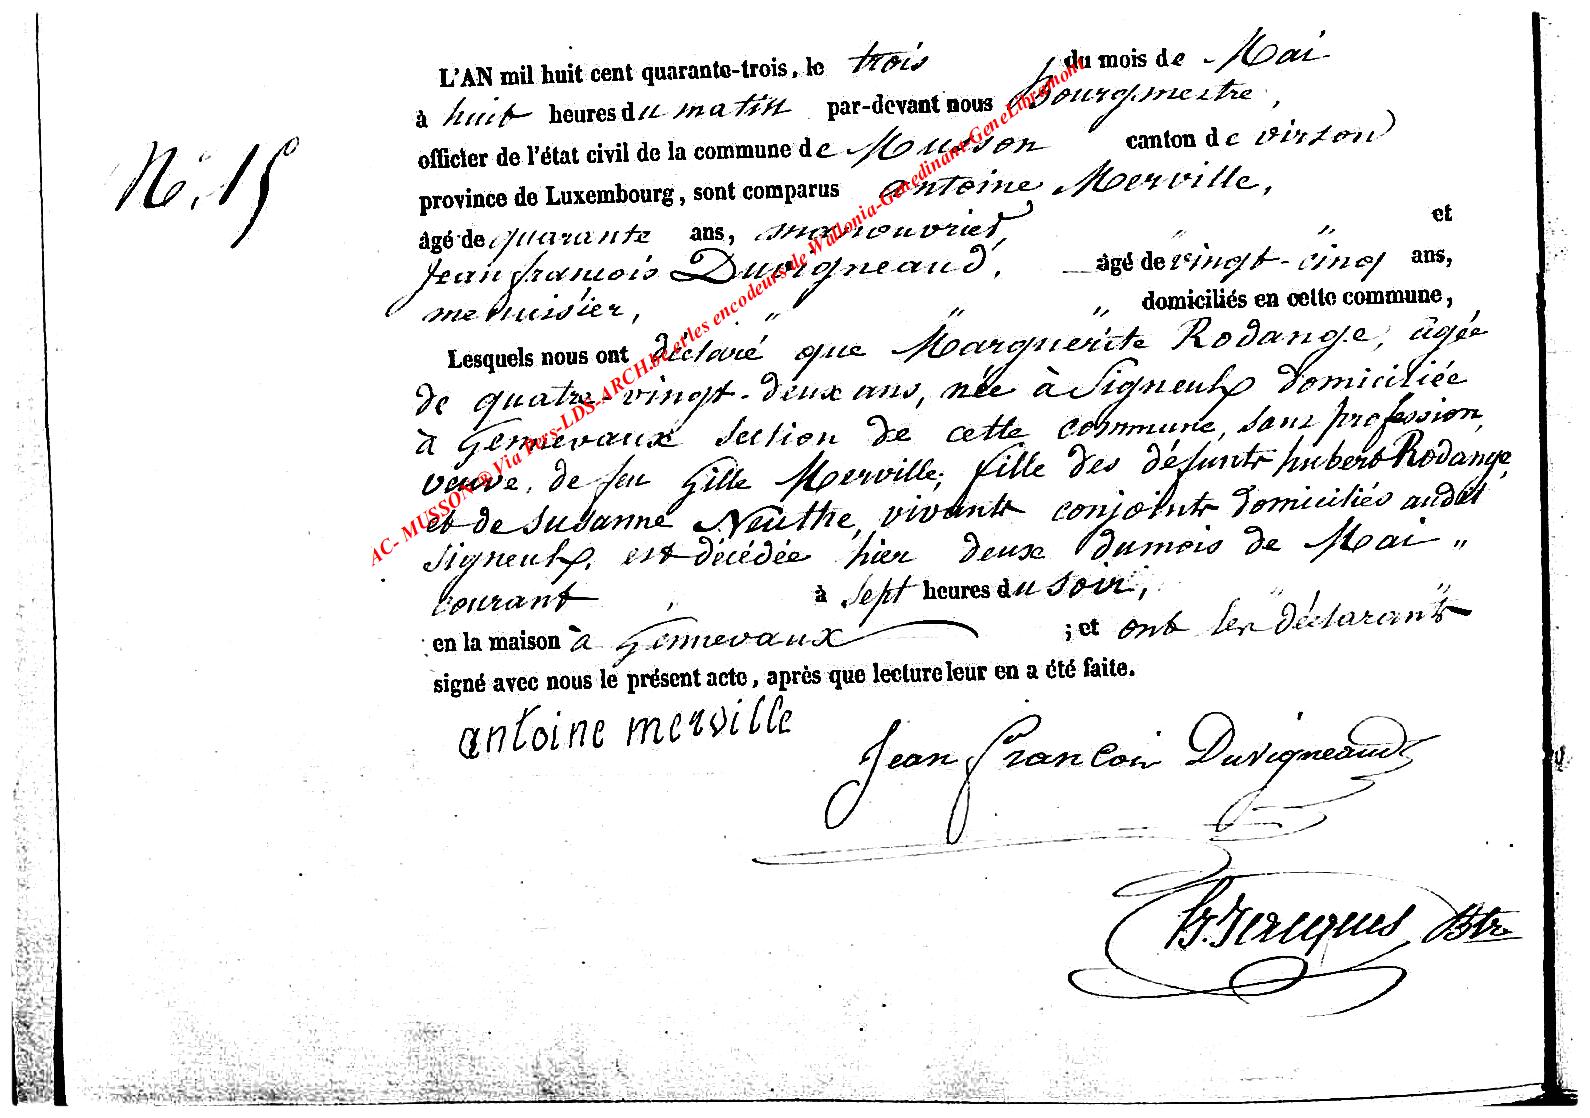 L'AN mil huit cent quarante-trois, le trois du mois de Mai
à huit heures du matin par-devant nous Bourgmestre,
officier de l'état civil de la commune de Musson canton de virton
province de Luxembourg, sont comparus antoine Merville,
N°. 15
âgé de quarante ans, manouvrier, " " et
Jean françois Duvigneaud, âgé de vingt-cinq ans,
menuisier, " " " domiciliés en cette commune,
Lesquels nous ont déclaré que Marguerite Rodange, âgée
de quatre-vingt-deux ans, née à Signeulx domiciliée
à Gennevaux section de cette commune, sans profession,
veuve, de feu Gille Merville; fille des défunts hubert Rodange,
et de Susanne Neuthe, vivants conjoints domiciliés audit
Signeulx, est décédée hier deux du mois de Mai "
courant " à sept heures du soir, " "
en la maison à Gennevaux ; et ont les déclarants
signé avec nous le présent acte, après que lecture leur en a été faite.
antoine merville
Jean françois Duvigneaud
Jacques Btre
AC- MUSSON@Via Pers-LDS-ARCH.be erles encodeurs de Wallonia-Genedinant-GeneLibramont